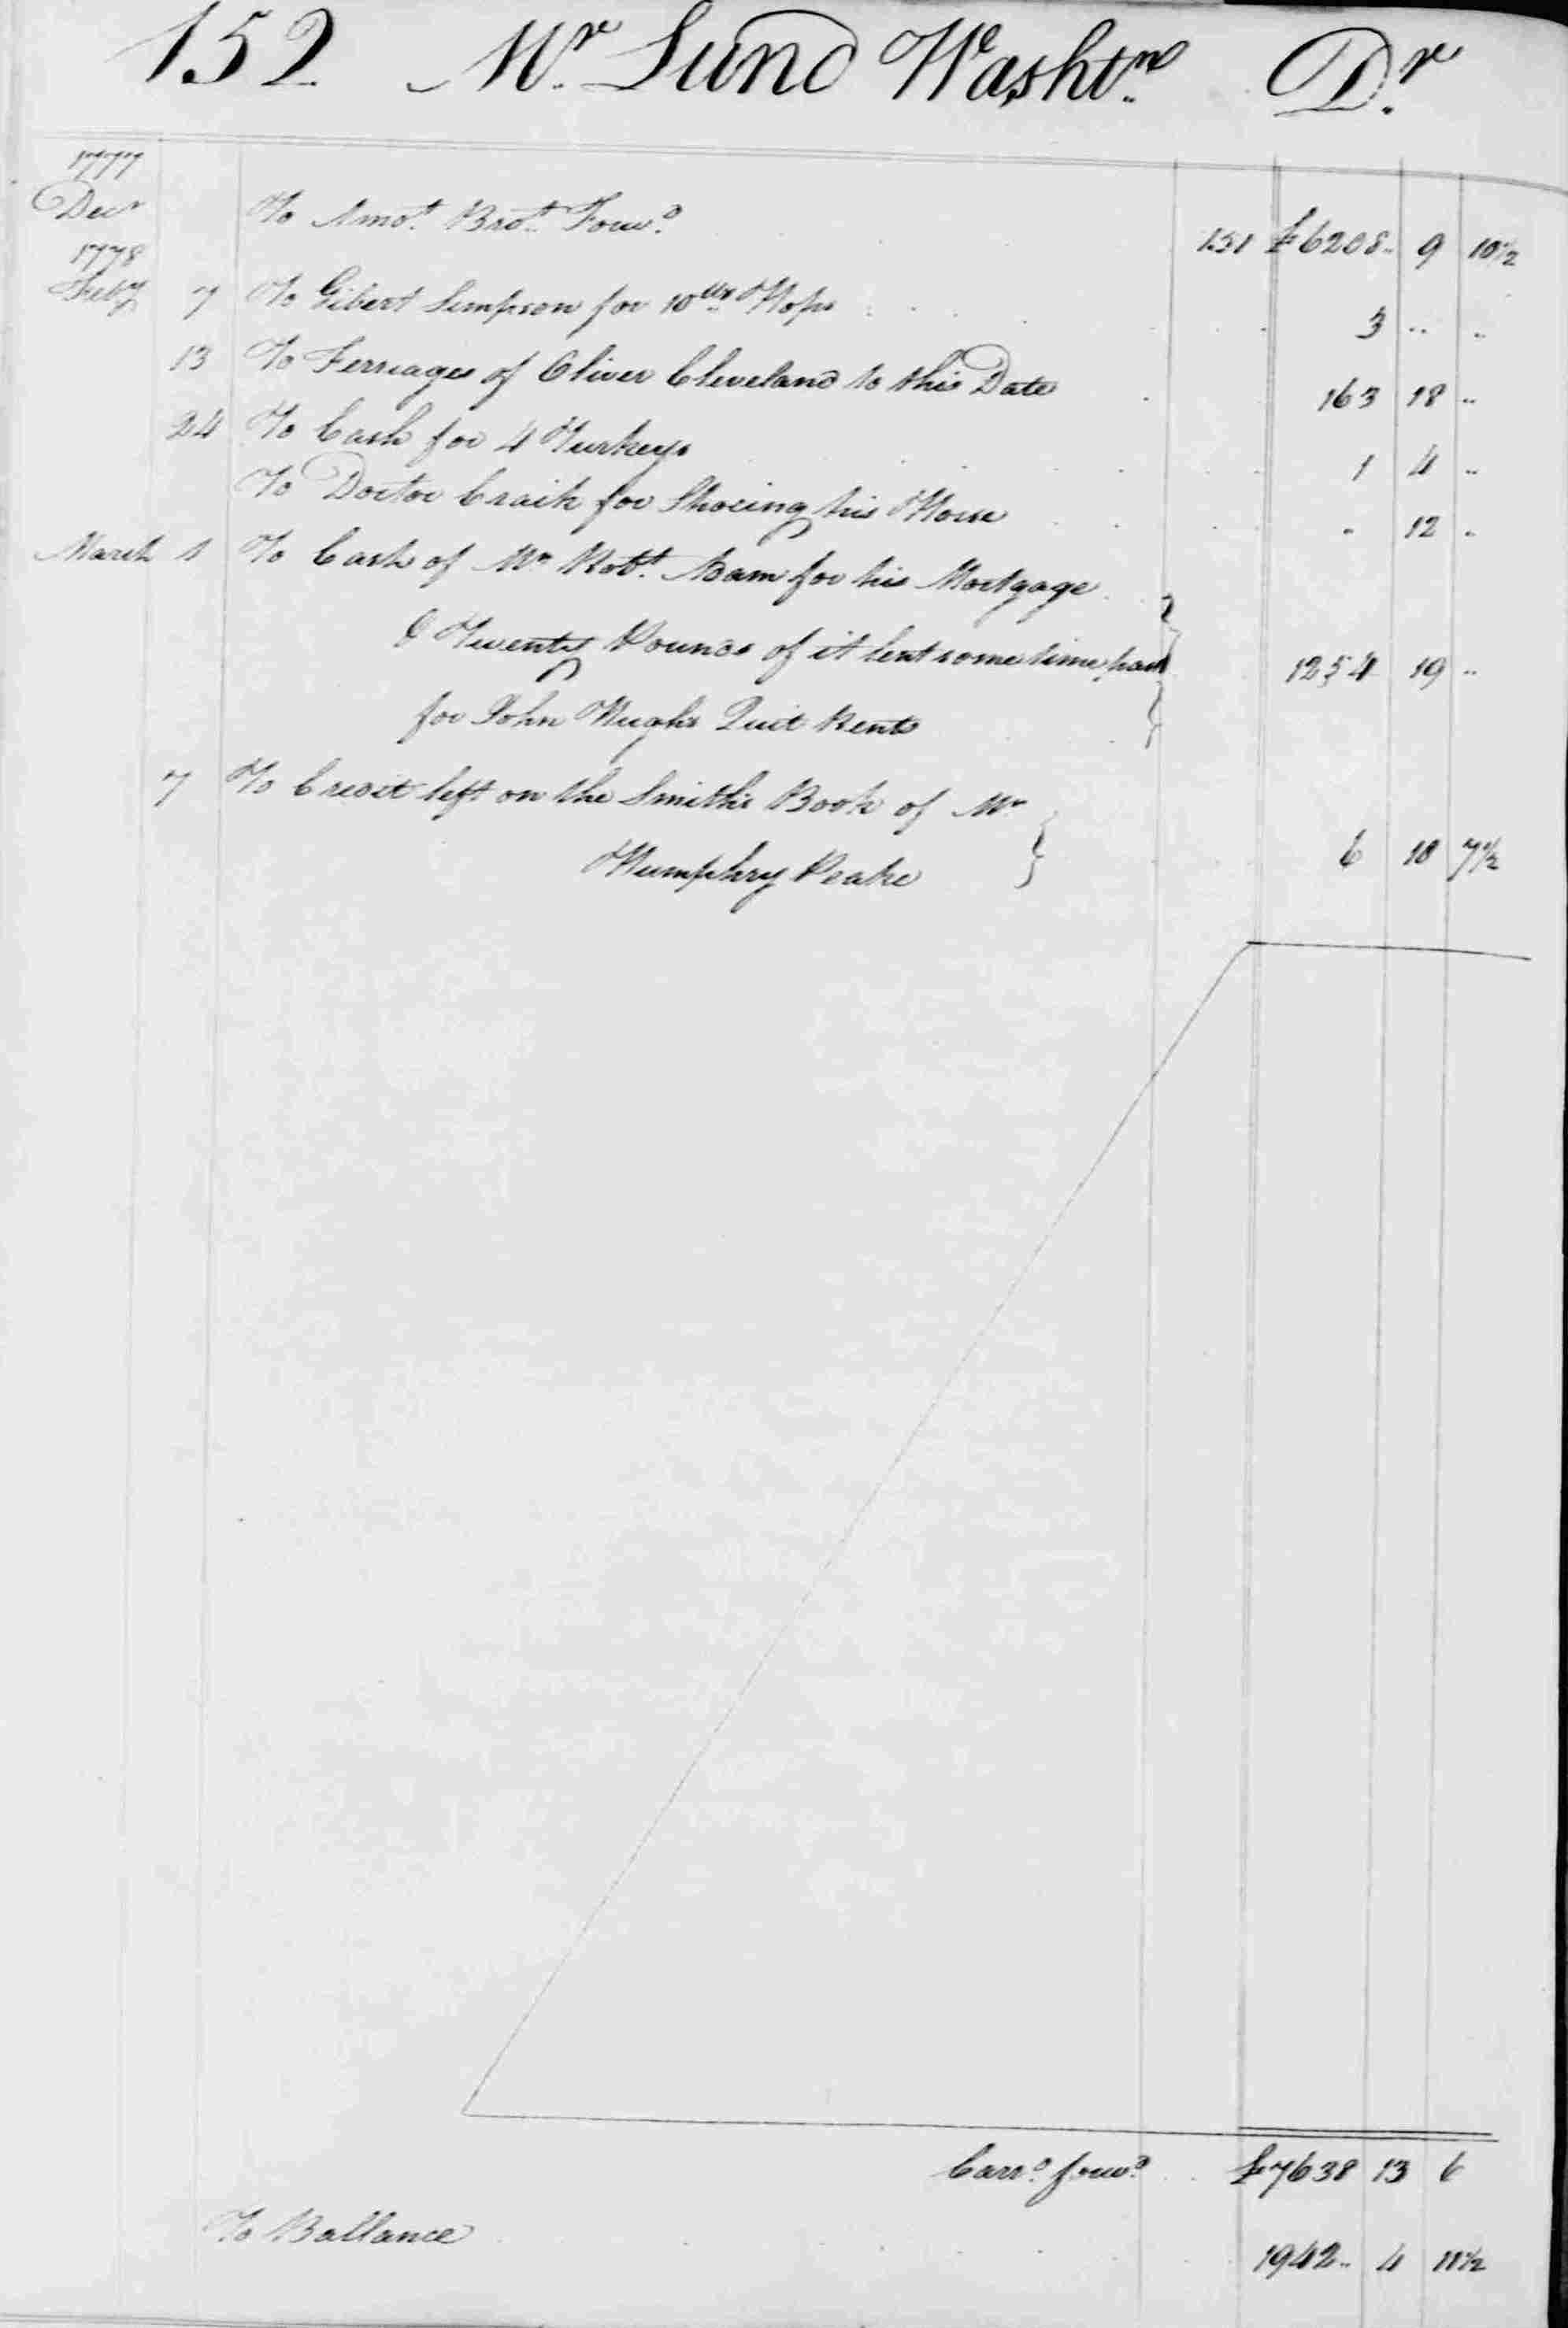 152 Mr. Lund Washtn. Dr.
1777
Decr To Amot. Brot. Forwd. 151 £6208 .. 9 10½
1778
Feby 7 To Gilbert Simpson for 10 lbs Hops 3 .. ..
13 To Ferriages of Oliver Cleveland to this Date 163 18 ..
24 To Cash for 4 Turkeys 1 4 ..
To Doctor Craik for Shoeing his Horse .. 12 ..
March 1 To Cash of Mr. Robt. Adam for his Mortgage
& Twenty Pounds of it lent some time past 1254 19 ..
for John Hughs Quit Rents
7 To Credit left on the Smith's Book of Mr
Humphry Peake 6 10 7½
Carrd. forwd. £7638 13 6
To Ballance 1942 .. 4 11½